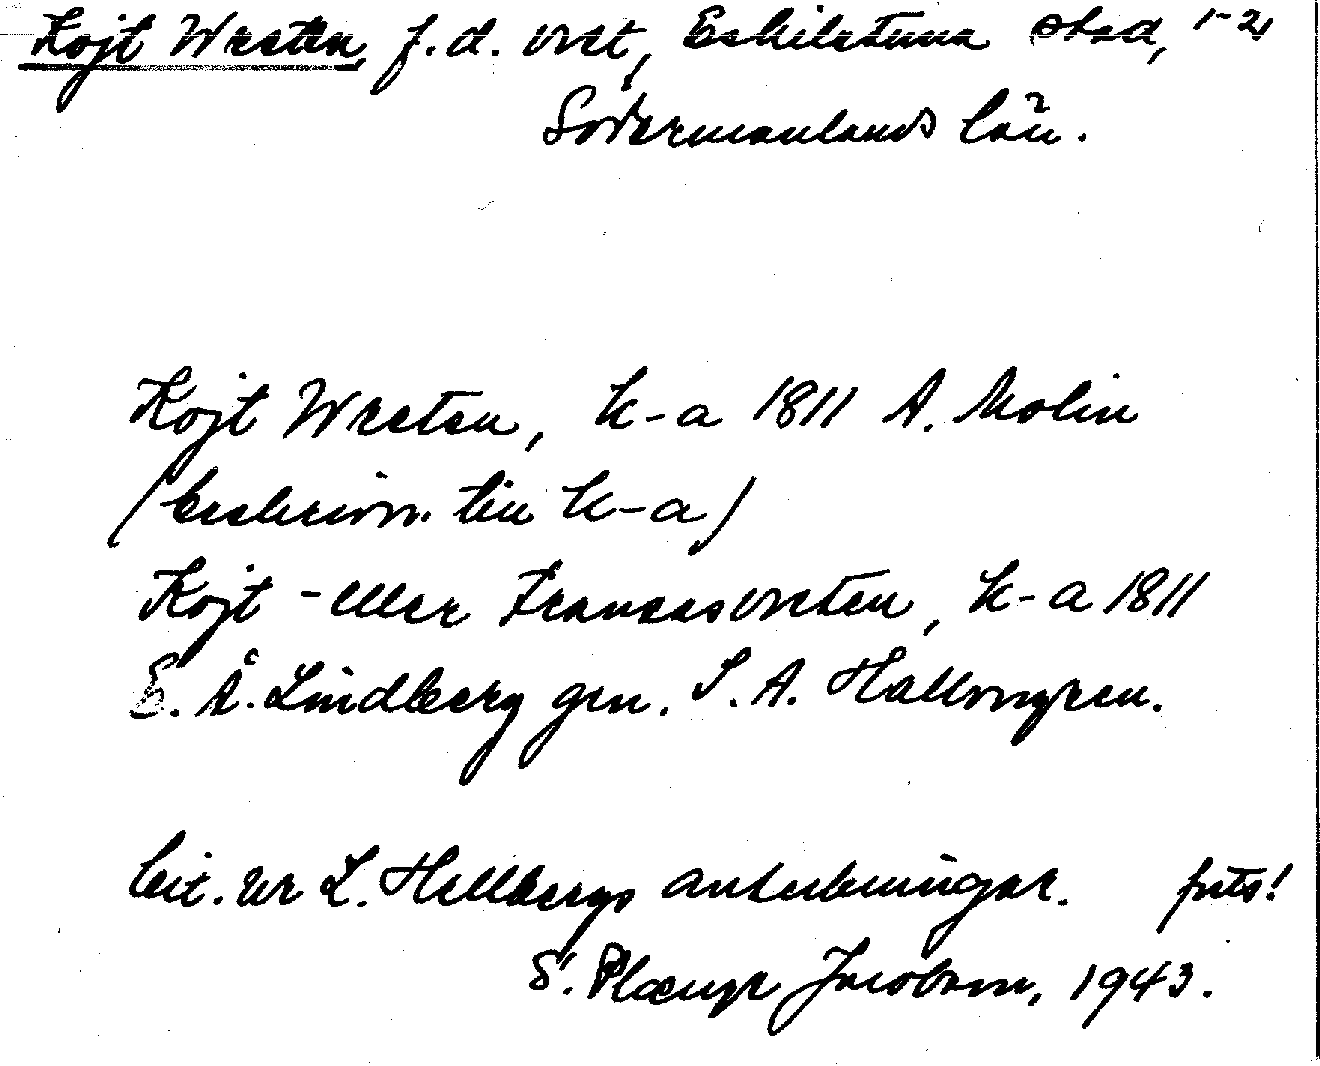 Kojt Wreten, f.d. vret, Eskilstuna stad, 1-2,
Södermanlands län.
Kojt Wreten, k-a 1811 A. Molin
(beskrivn. till k-a)
Kojt- eller Franzésvreten, k-a 1811
E. Å. Lindberg gm. S. A. Hallongren.
cit. ur L. Hellbergs anteckningar. forts!
S. Jacobson, 1943.